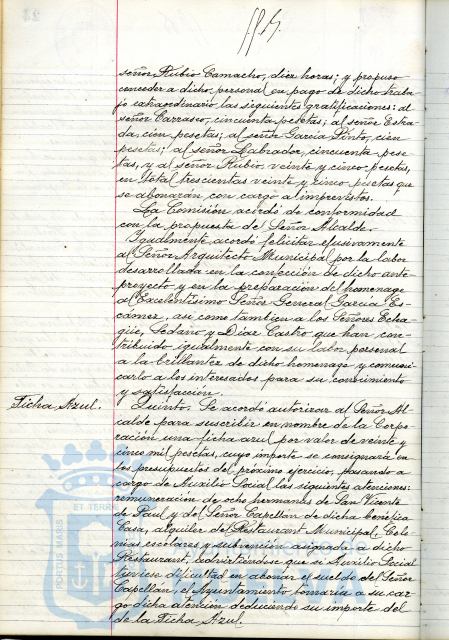 señor Rubio Camacho, diez horas; y propuso
conceder a dicho personal en pago de dicho traba-
jo extraordinario las siguientes gratificaciones: al
señor Carrasco, cincuenta pesetas; al señor Estra-
da, cien pesetas; al señor García Pinto, cien
pesetas; al señor Labrador, cincuenta pese-
tas, y al señor Rubio veinte y cinco pesetas,
en total trescientas veinte y cinco pesetas que
se abonarán con cargo al imprevistos.
La Comisión acordó de conformidad
con la propuesta del Señor Alcalde.
Igualmente acordó felicitar efusivamente
al Señor Arquitecto Municipal por la labor
desarrollada en la confección de dicho ante-
proyecto y en la preparación del homenage
al Excelentísimo Señor General García Es-
cámez, así como tambien a los Señores Echa-
güe, Sedano y Díaz Castro que han con-
tribuido igualmente con su labor personal
a la brillantez de dicho homenage y comuni-
carlo a los interesados para su conocimiento
y satisfacción.
Ficha Azul.
Quinto. Se acordó autorizar al Señor Al-
calde para suscribir en nombre de la Corpo-
ración una ficha azul por valor de veinte y
cinco mil pesetas, cuyo importe se consignará en
los presupuestos del próximo ejercicio, pasando a
cargo de Auxilio Social las siguientes atenciones:
remuneración de ocho hermanas de San Vicente
de Paul y del Señor Capellán de dicha benéfica
Casa, alquiler del Restaurant Municipal, Colo-
nias escolares y subvención asignada a dicho
Restaurant, advirtiéndose que si Auxilio Social
tuviese dificultad en abonar el sueldo del Señor
Capellán, el Ayuntamiento tomaría a su car-
go dicha atención deduciendo su importe del
de la Ficha Azul.
PORTUS MARIS
ET TERRE